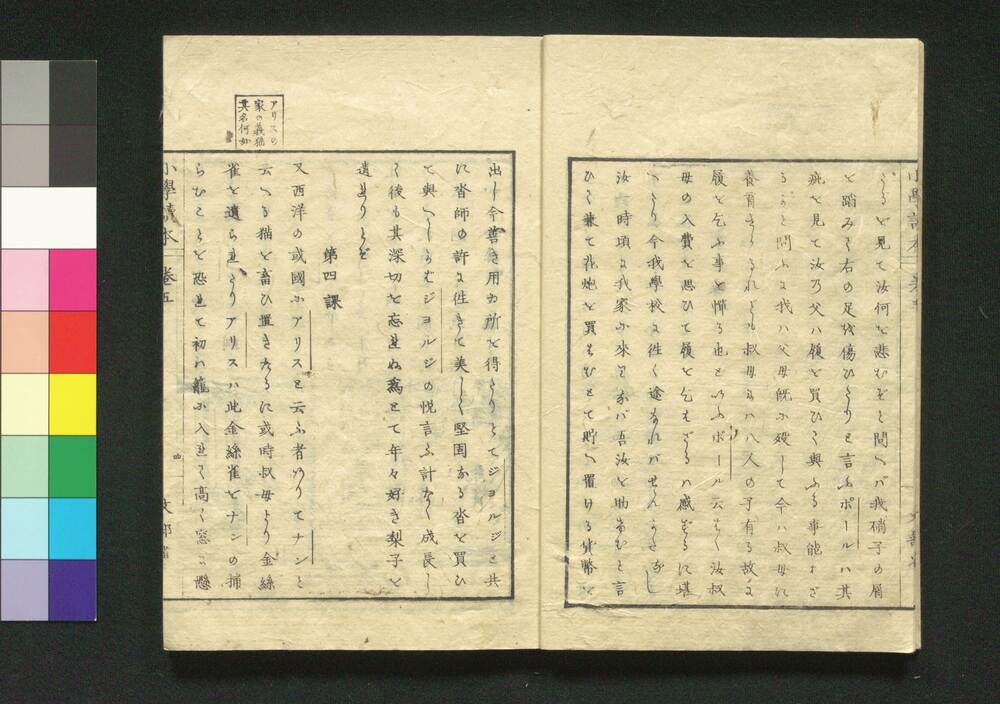 くるを見て汝何を悲むぞと問へバ我硝子の屑
を踏みて右の足を傷ひたりと言ふポールハ其
疵を見て汝乃父ハ履を買ひて與ふる事能はざ
るかと問ふに我ハ父母既に歿して今ハ叔母に
養育せらるれども叔母にハ八人の子有る故に
履を乞ふ事を憚る也といふポール云はく汝叔
母の入費を思ひて履を乞はざるハ感ずるに堪
へたり今我學校に往く途なれバせんかたなし
汝 時頃に我家に來らバ吾汝を助けむと言
ひて兼て花炮を買はむとて貯へ置ける貨幣を
出し今善き用る所を得たりとてジヨルジと共
に沓師の許に往きて美しく堅固なる沓を買ひ
て與へしかむジヨルジの悦言ふ計なく成長し
て後も其深切を忘れぬ爲とて年々好き梨子を
遺れりとぞ
第四課
又西洋の或國にアリスと云ふ者ありてナンと
云へる猫を畜ひ置きたるに或時叔母より金絲
雀を遺られたりアリスハ此金絲雀をナンの捕
らむことを恐れて初ハ籠に入れて高く窓に懸
アリスの
家の義猫
其名何如
小學讀本 巻五
四
文部省